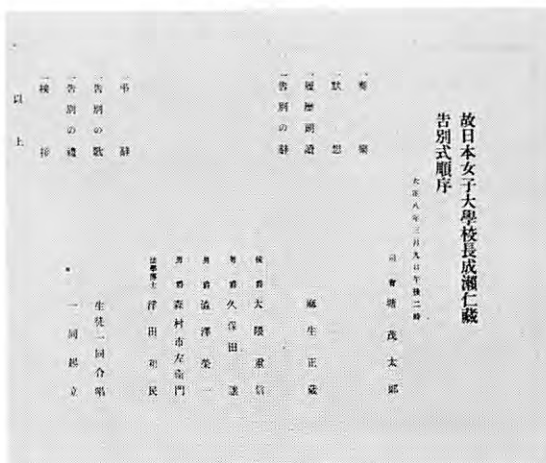 故日本女子大學校長成瀨仁藏
告別式順序
大正八年三月九日午後二時
司會 塘茂太郎
一奏樂
一默想
一履歷朗讀 麻生正藏
一告別の辭
侯爵 大隈重信
男爵 久保田讓
男爵 澁澤榮一
男爵 森村市左衞門
法學博士 浮田和民
一弔辭
一告別の歌 生徒一同合唱
一告別の禮 一同起立
一挨拶
以上